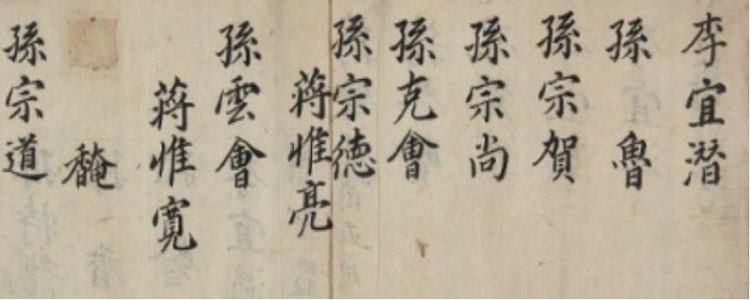 李宜潛
孫魯
孫宗賀
孫宗尚
孫克會
孫宗德
蔣惟亮
孫雲會
蔣惟寬
馣
孫宗道